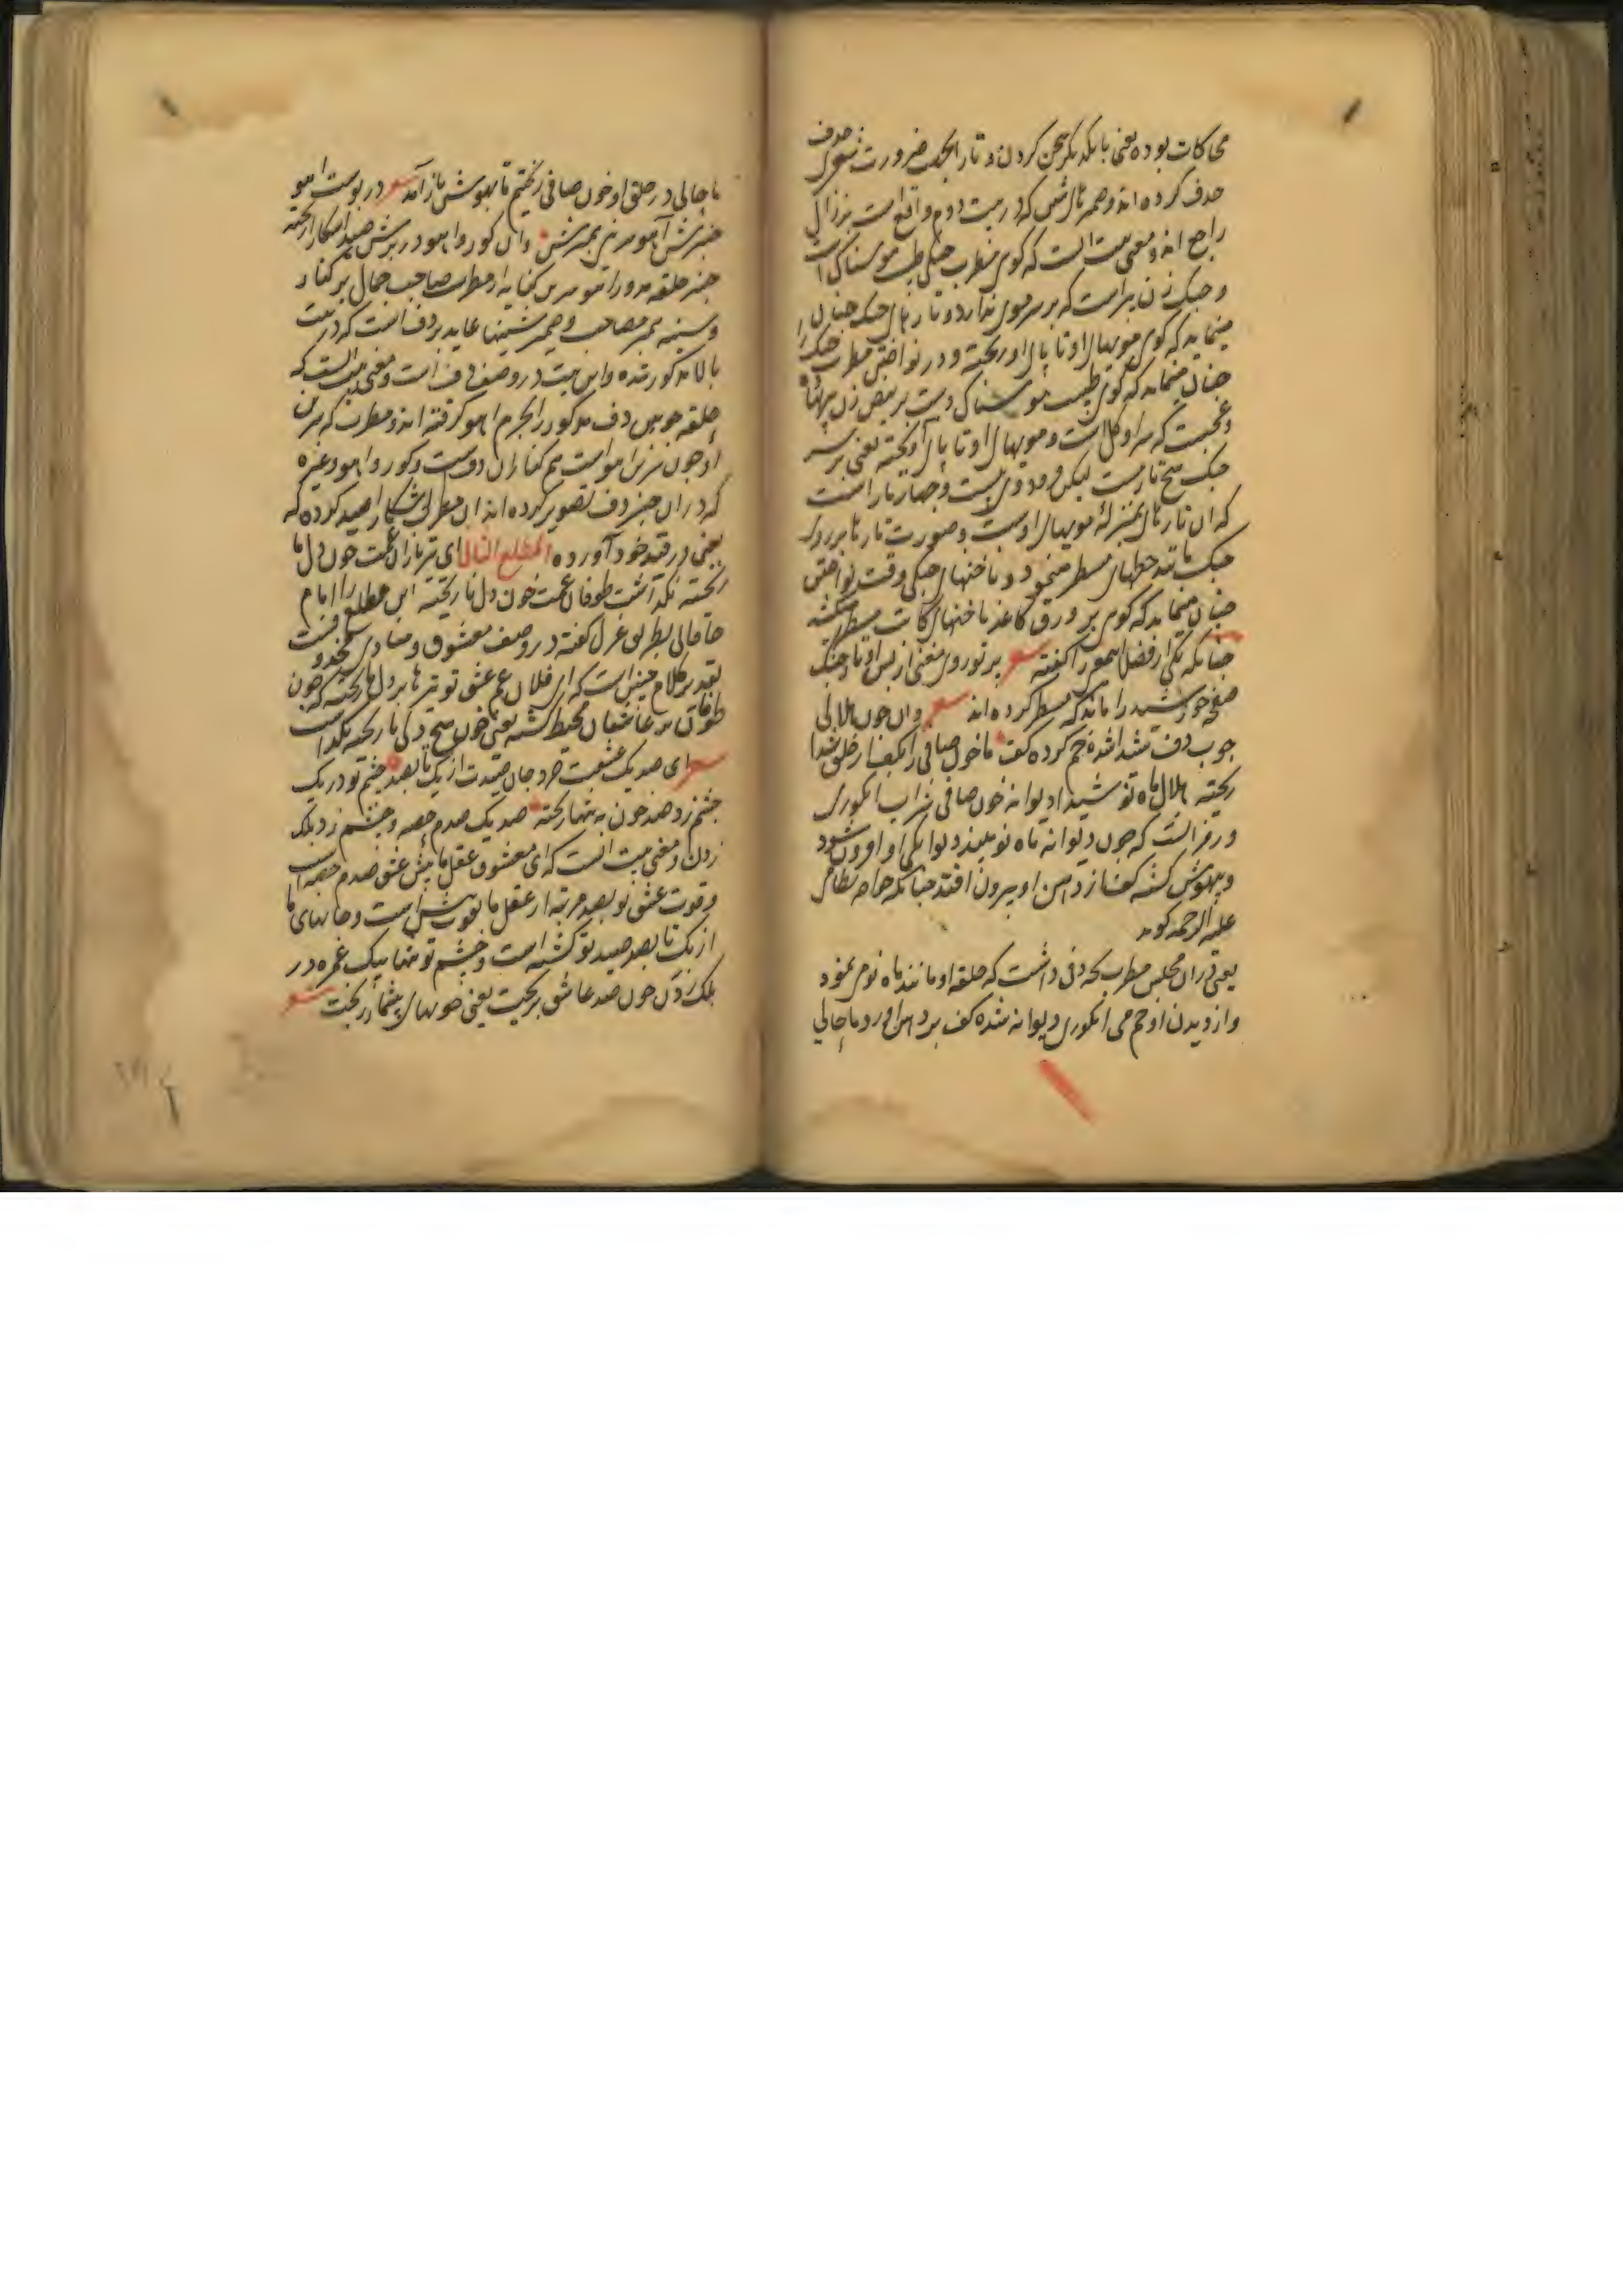 محاکات بوده یعنی با یکدیگر سخن کردن و تا را بجهت ضرورت شعری حذف
حذف کرده اند و ضمیر شین که در بیت دوم واقع است بزال
راجع اند و معنی بیت آنست که کوی مطرب چنگی طبیب هوسناک است
و چنک زن پیر است که بر سر موی ندارد و تارهای چنک چنان
مینماید که کوی مویهای او تا پای او ریخته و در نواختن مطرب چنک را
چنان مینماید که کوی طبیب هوسناکی دست بر نبض زن نهاده
و عجبست که سر او کل است و مویهای او تا پای آویخته یعنی بر سر
چنک هیچ تار نیست لیکن فرود وی بیست و چهار تار است
که ان تارهای بمنزله مویهای اوست و صورت تارها بر روی
چنک مانند خطهای مسطر میشود و ناخنهای چنکی وقت نواختن
چنان مینماید که کوی بر ورق کاغذ ناخنهای کاتب مسطر میکشد
چنانکه یکی از فضلا کفته شعر بر تو روی مغنی از پس اوتار چنک
صفحه خورشید را ماند که مسطر کرده اند شعر وان چون هلالی
چوب دف شیدا شده خم کرده کف ما خون صافی را بکف از حلق شیدا
ریخته هلال ماه نو شیدا دیوانه خون صافی شراب انکوری
و رمز آنست که چون دیوانه ماه نو بیند دیوانکی او افزون شود
و بیهوش کشته کف از دهن او بیرون افتد چنانکه خواجه نظامی
علیه الرحمه کوید
یعنی در ان مجلس مطرب بچه دفی داشت که حلقه او مانند ماه نو می نمود
و از دیدن او خم می انکوری دیوانه شده کف بر دهن آورد ما حالی
ما حالی در حلق او خون صافی ریختیم تا بهوش باز آمد شعر در پوست آهو
چنبرش آهو سرین همبرش وان کور و آهو در برش صید آشکارا ریخته
چنبر حلقه مدور آهو سرین کنایه از مطرب صاحب جمال بر کنار
و سینه همبر مصاحب و ضمیر شینها عاید بدف است که در بیت
بالا مذکور شده و این بیت در وصف دف است و معنی بیت آنست که
حلقه چوبین دف مذکور را بچرم آهو کرفته اند و مطرب که سرین
او چون سرین آهو است هم کنار ان دف است و کور و آهو و غیره
که در ان چنبر دف تصویر کرده اند ان مطرب آشکارا صید کرده که
یعنی در قید خود آورده المطلع الثانی ای تیر باران غمت خون دل ما
ریخته نکذاشت طوفان غمت خون دل نا ریخته این مطلع را امام
خاقانی بطریق غزل کفته در وصف معشوق و منادی محذوفست
تقدیر کلام چنین است که ای فلان غم عشق تو تیرها بر دلها ریخته که خون
طوفان بر عاشقان محیط کشته یعنی خون هیچ دلی نا ریخته نکذاشت
شعر ای صد یک عشقت خرد جان صیدت از یک تا بصد چشم تو در یک
چشم زد صد خون به تنها ریخته صد یک صدم حصه و چشم زد پلک
زدن و معنی بیت آنست که ای معشوق عقل ما پیش عشق صدم حصه است
و قوت عشق تو بصد مرتبه از عقل ما بیش است و جانهای ما
از یک تا بصد صید تو کشته است و چشم تو تنها بیک غمزه در
پلک زدن خون صد عاشق بریخت یعنی خونهای بیشمار ریخت شعر